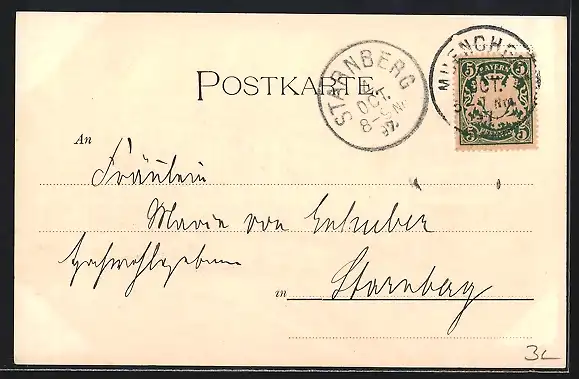 POSTKARTE.
STARNBERG
OCT.
97.
MUENCHE
OCT.
5 BAYERN 5
5 PFENNIG 5
An
Fräulein
Marie von Enhuber
Hochwohlgeboren
in Starnberg
3L